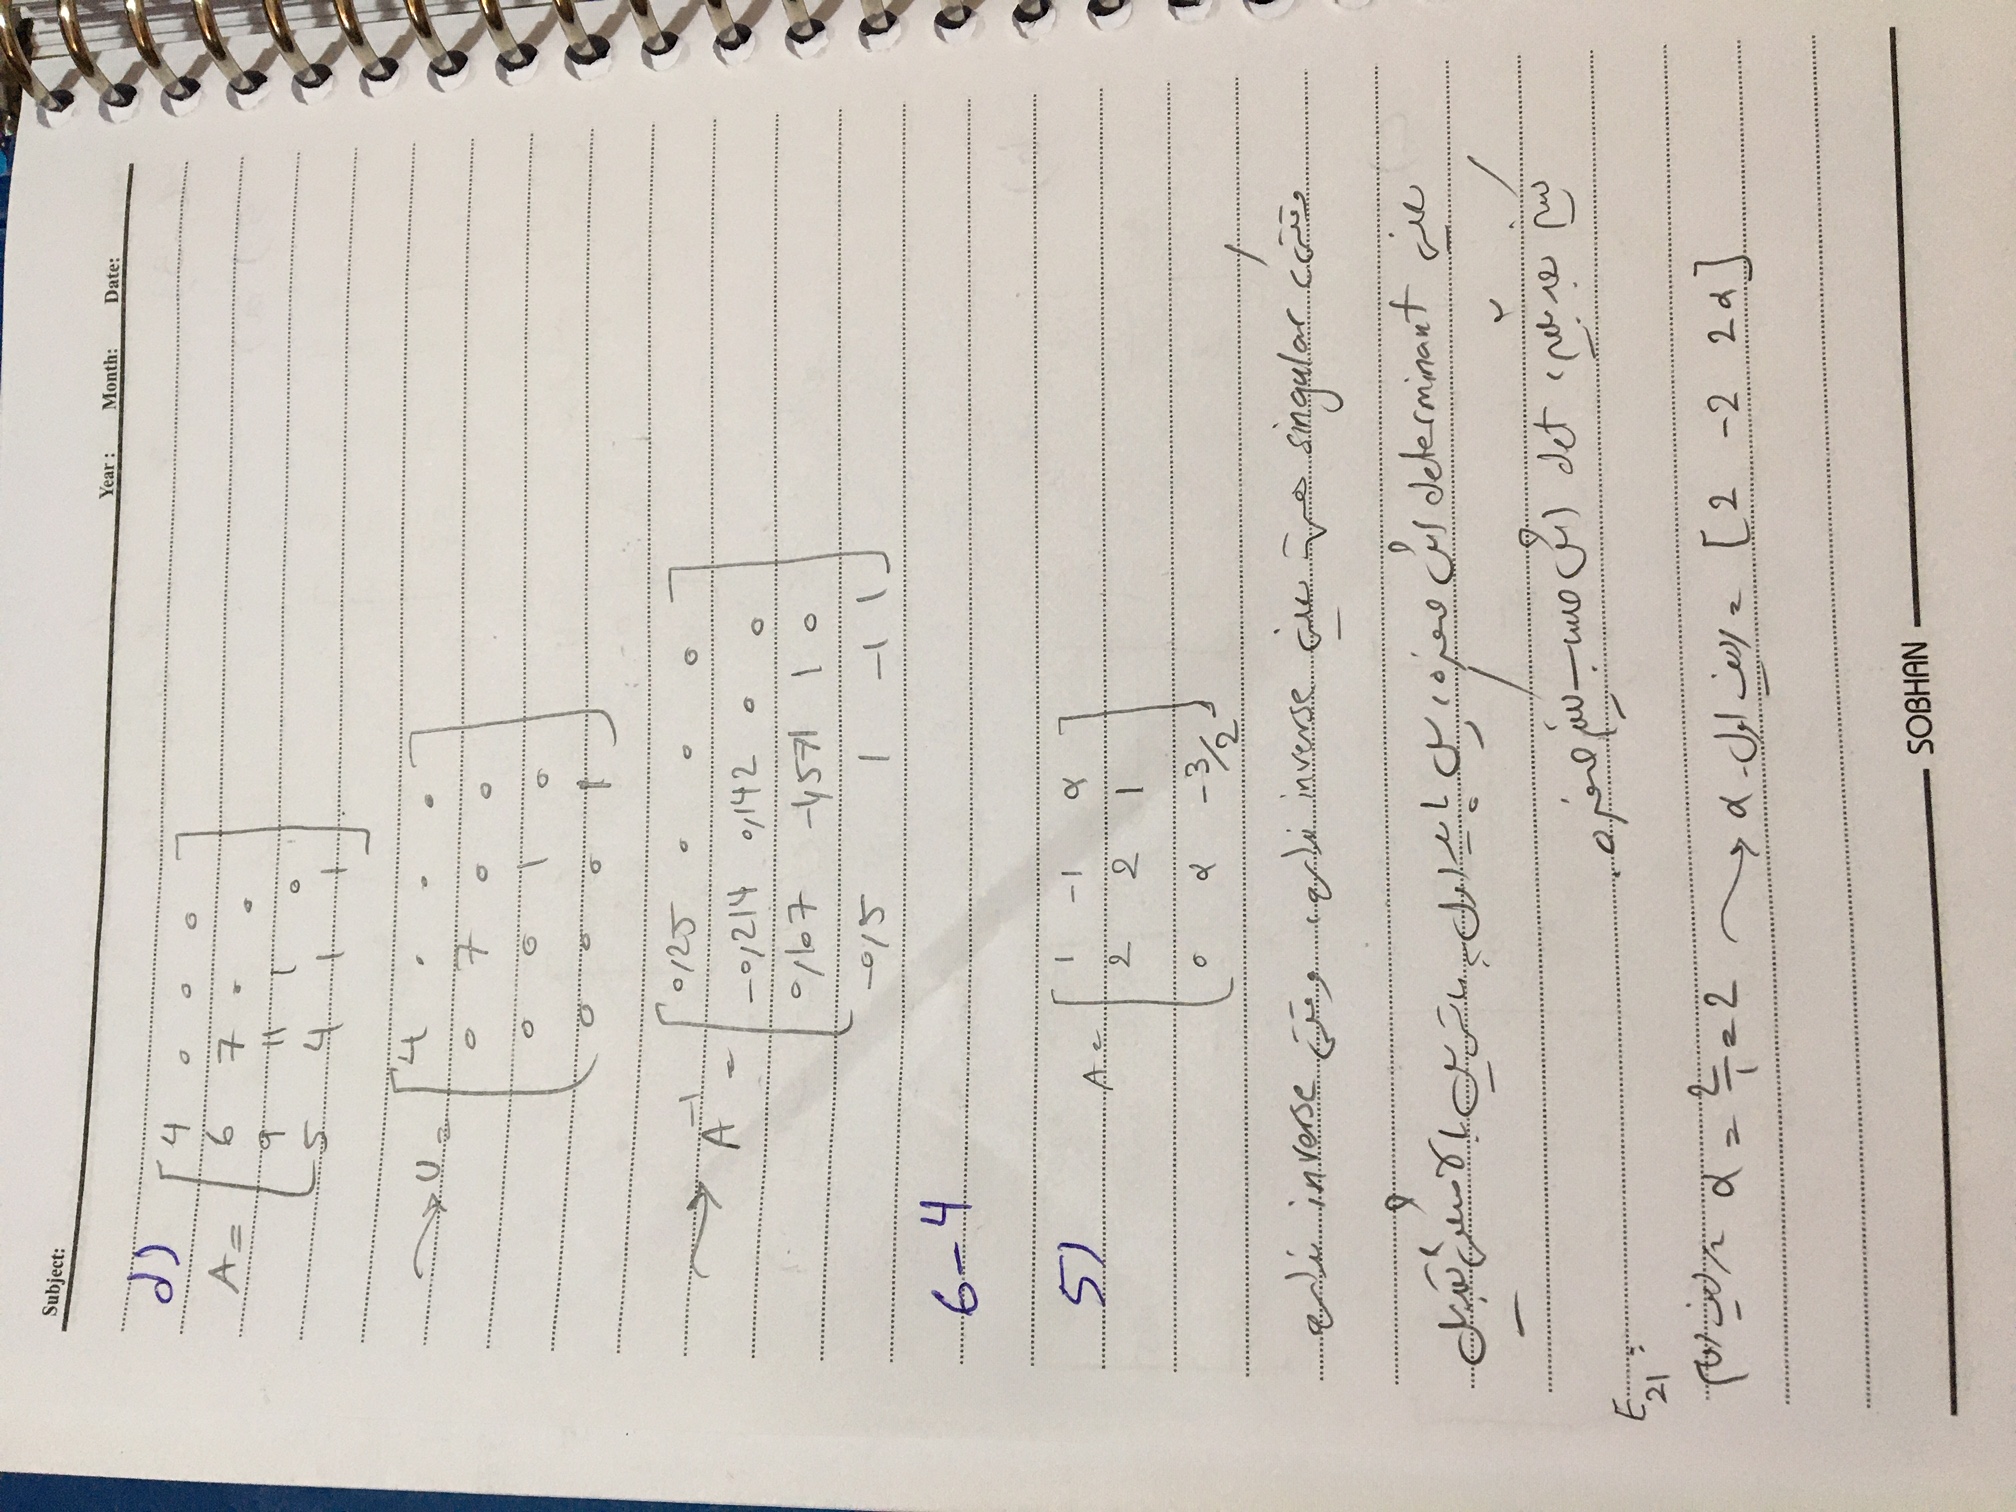 Subject:
Year : Month: Date:
d)
A = [ 4 0 0 0
6 7 0 0
9 11 1 0
5 4 1 1 ]
→ U = [ 4 0 0 0
0 7 0 0
0 0 1 0
0 0 0 1 ]
→ A⁻¹ = [ 0,25 0 0 0
-0,214 0,142 0 0
0,107 -1,571 1 0
-0,5 1 -1 1 ]
6-4
5)
A = [ 1 -1 α
2 2 1
0 α -3/2 ]
وقتی singular هست یعنی inverse نداره، وقتی inverse نداره
یعنی determinant اش صفره، پس باید اول ماتریس بالا مثلثی تشکیل
det اش حساب کنیم صفره.
E₂₁ :
α = 2/1 = 2 → α . ردیف اول = [ 2 -2 2α ]
SOBHAN